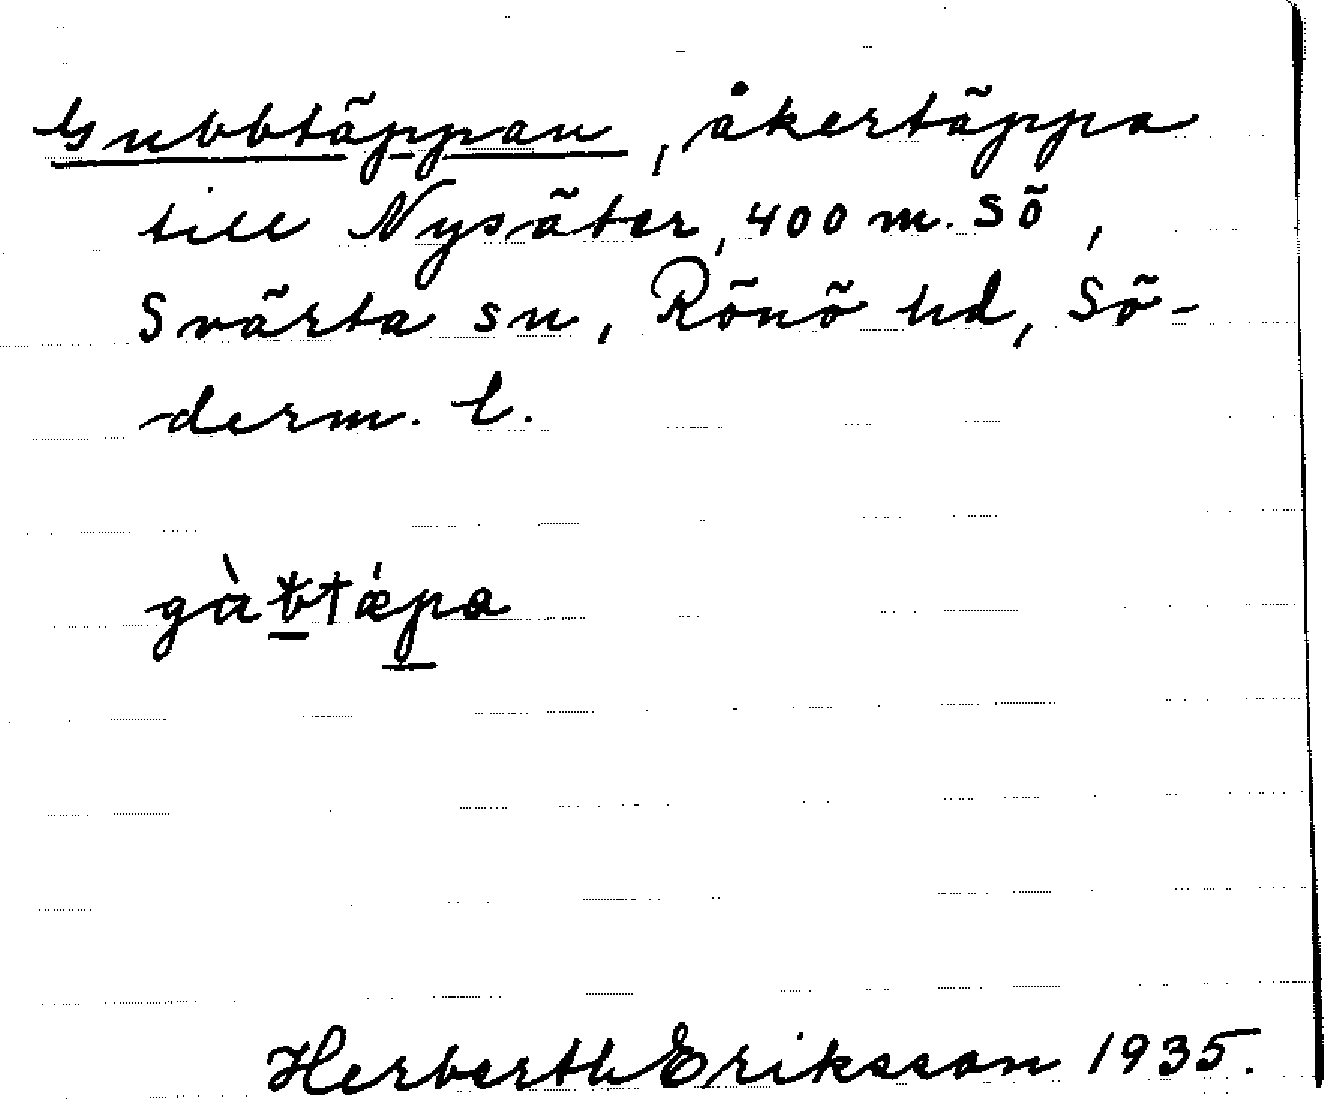 Gubbtäppan, åkertäppa
till Nysäter, 400 m. SÖ,
Svärta sn, Rönö hd, Sö-
derm. l.
gàbtǽpa
Herberth Eriksson 1935.